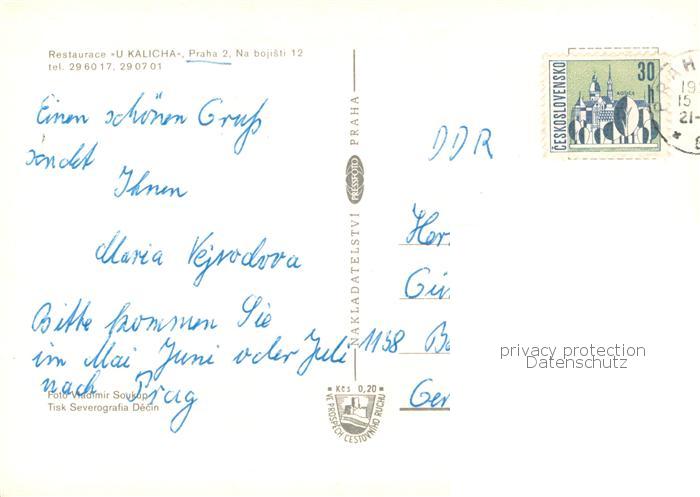 Restaurace »U KALICHA«, Praha 2, Na bojišti 12
tel. 29 60 17, 29 07 01
Einen schönen Gruß
sendet
Ihnen
Maria Vejvodova
Bitte kommen Sie
im Mai Juni oder Juli
nach Prag
Foto Vladimír Soukup
Tisk Severografia Děčín
NAKLADATELSTVÍ PRESSFOTO PRAHA
Kčs 0,20
VE PROSPĚCH CESTOVNÍHO RUCHU
ČESKOSLOVENSKO
30 h
KOŠICE
PRAH
15
21-
DDR
Her
1138
privacy protection
Datenschutz